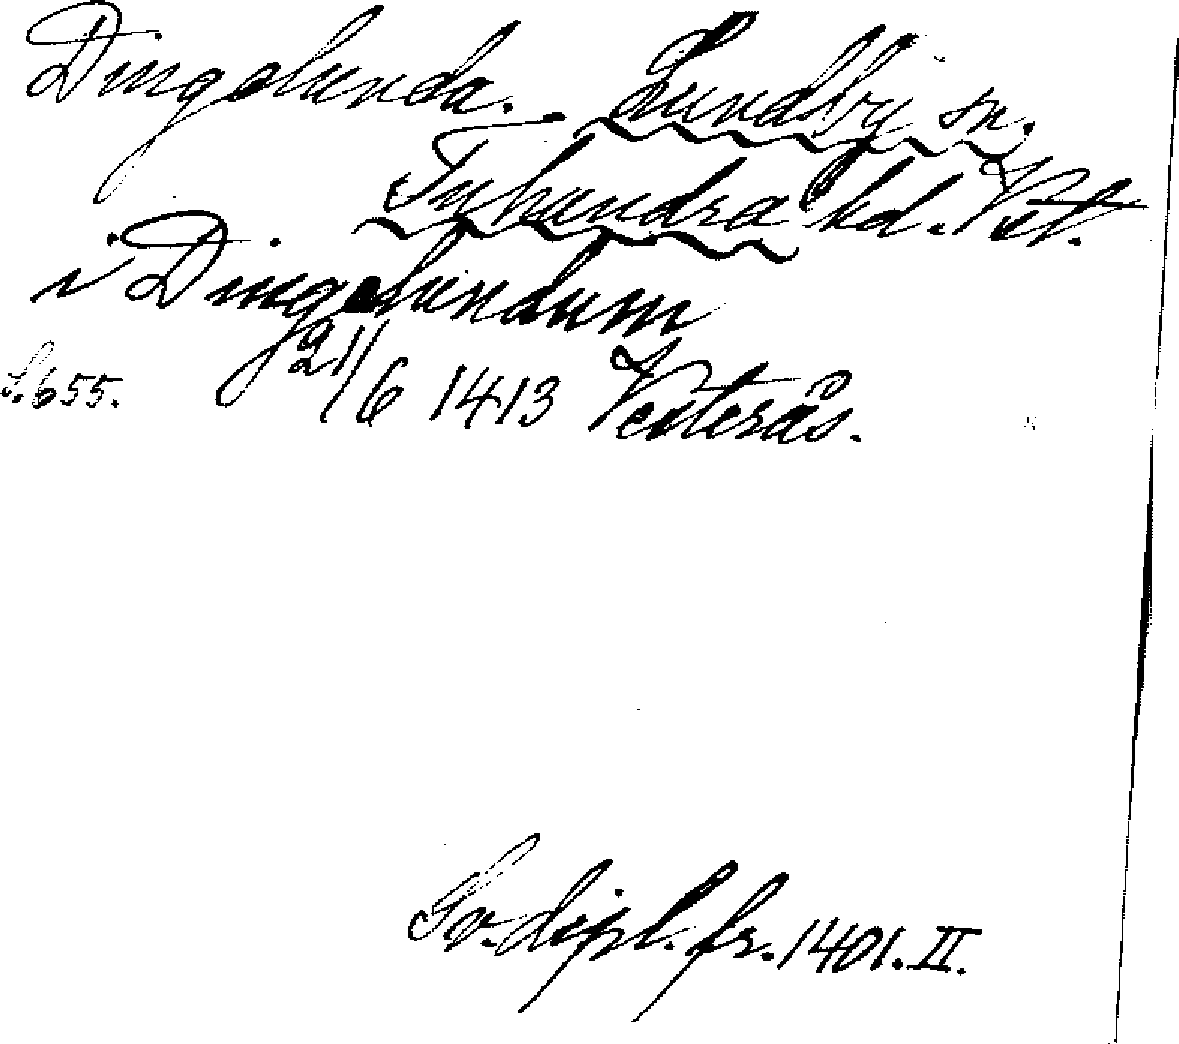 Dingelunda. Lundby sn.
Tuhundra hd. Vstl.
i Dingelundum
S. 655. 21/6 1413 Vesterås.
Sv. dipl. fr. 1401. II.